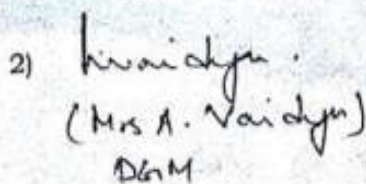 2) Avaidya.
(Mrs A. Vaidya)
DGM